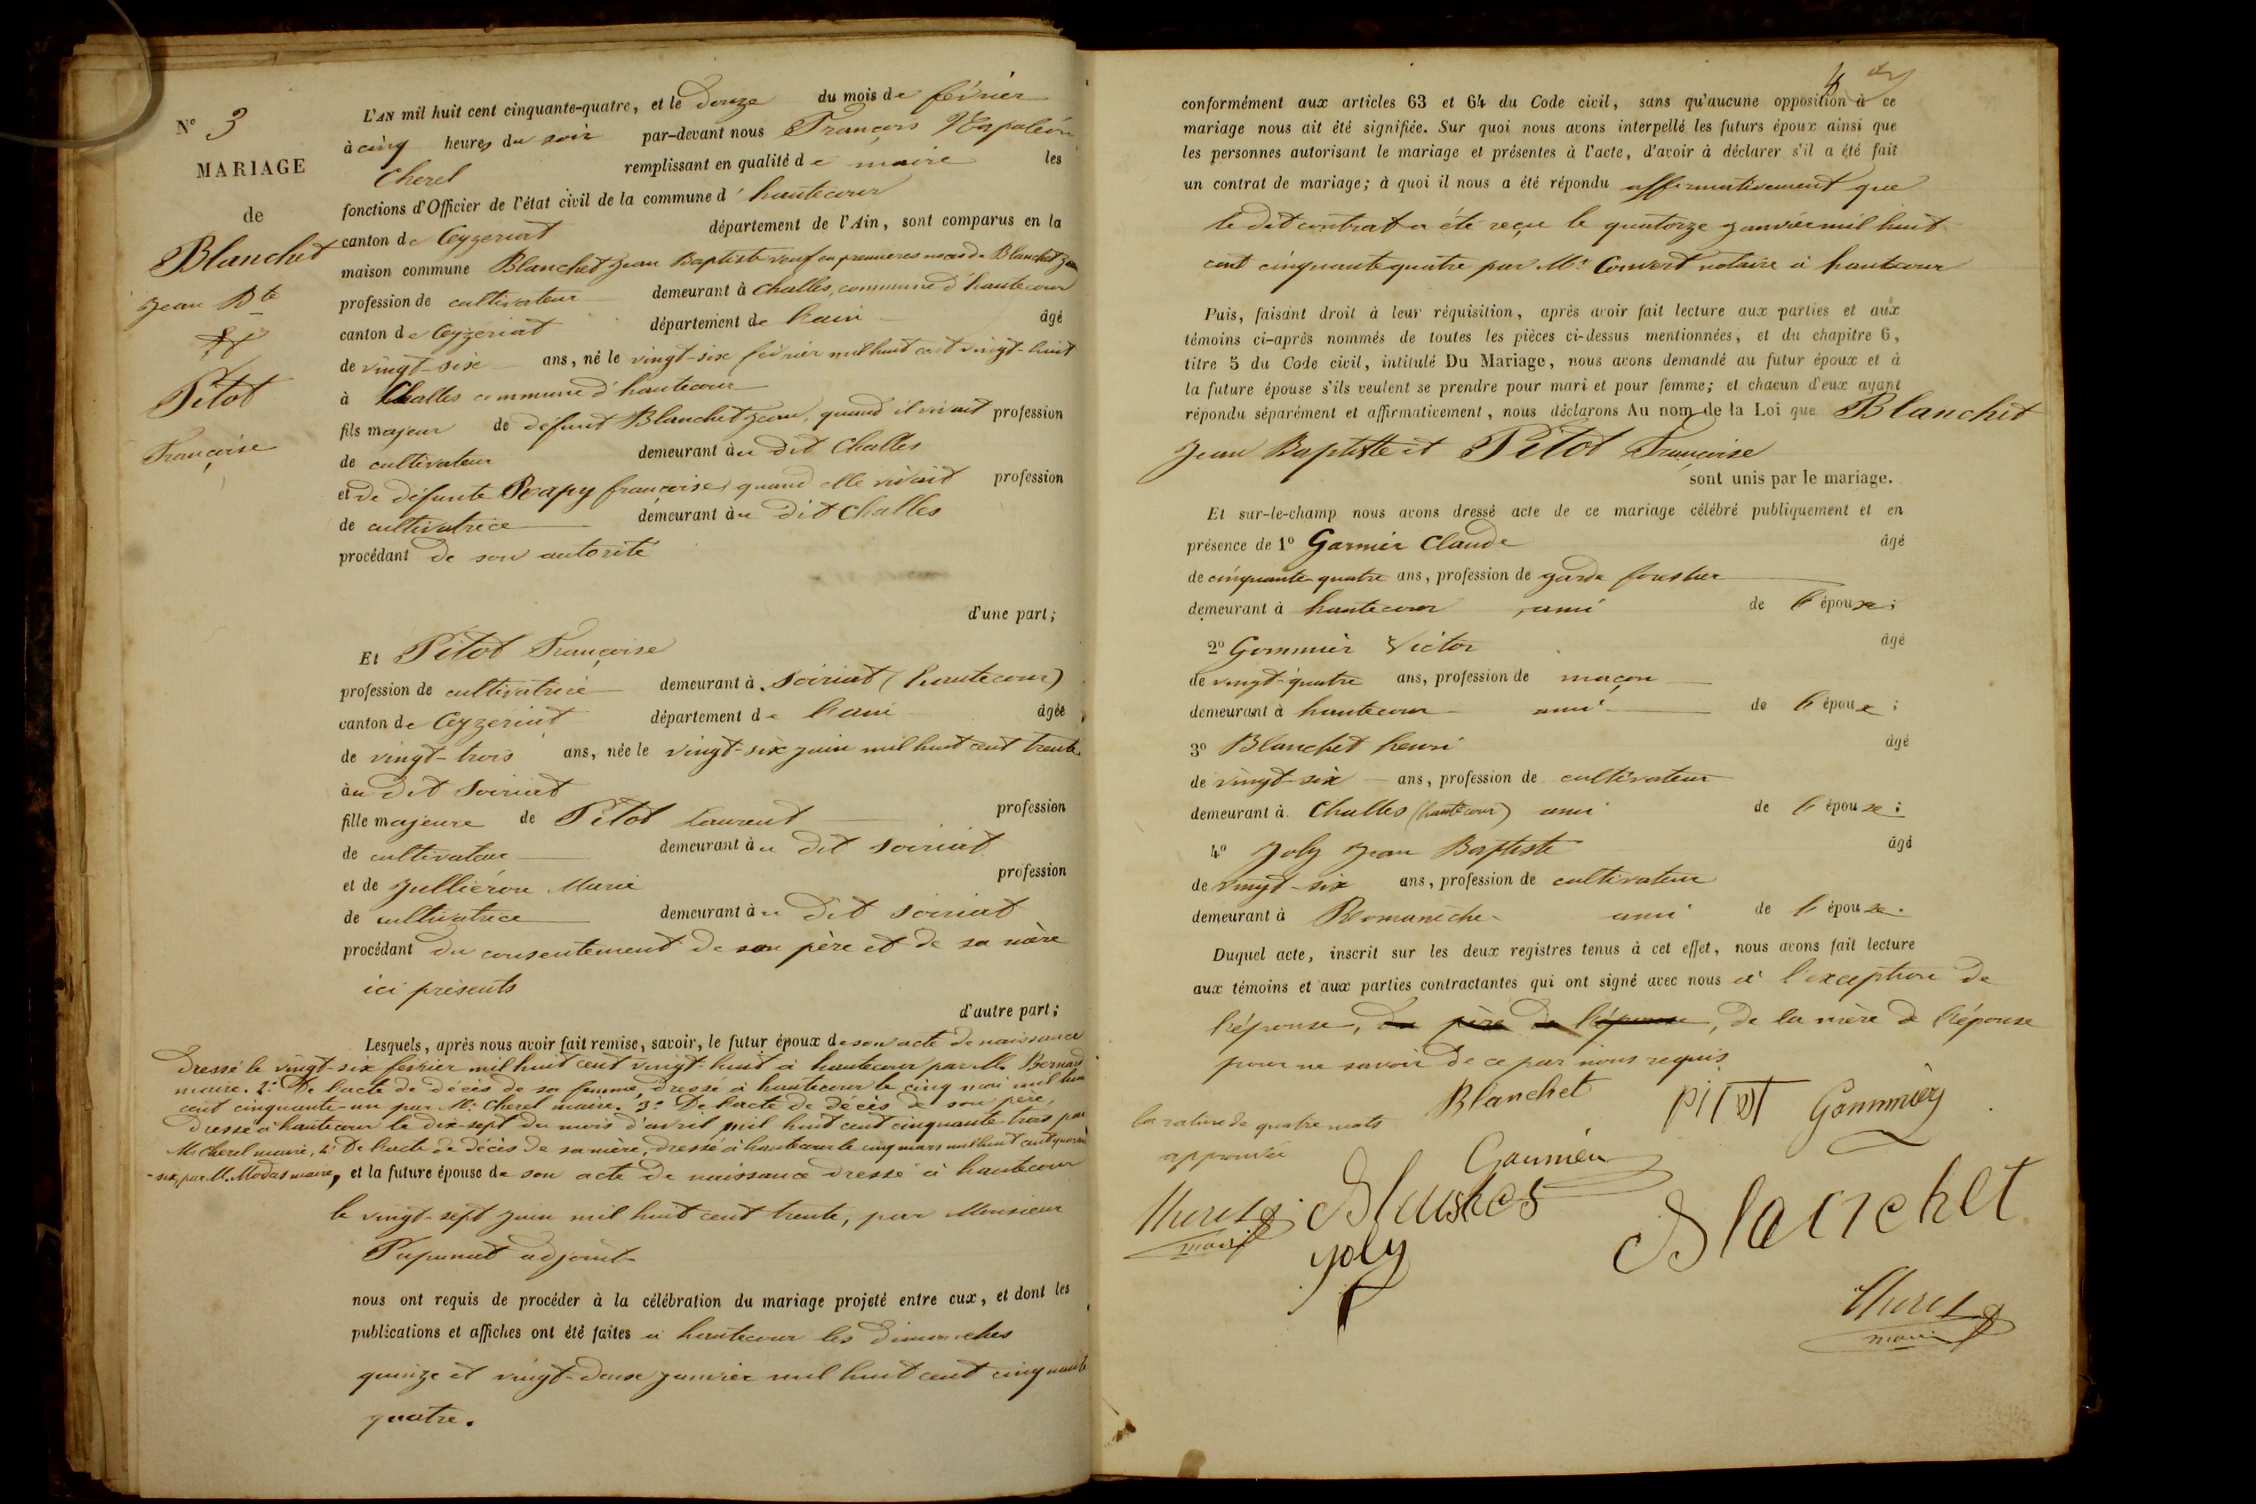 N° 3
MARIAGE
de
Blanchet
Jean Bte
et
Pitot
Françoise
L'AN mil huit cent cinquante-quatre, et le Douze du mois de février
à cinq heures du soir par-devant nous François Napoléon
Cherel remplissant en qualité de maire les
fonctions d'Officier de l'état civil de la commune d'hautecour
canton de Ceyzeriat département de l'Ain, sont comparus en la
maison commune Blanchet Jean Baptiste veuf en premieres noces de Blanchet
profession de cultivateur demeurant à Challes, commune d'hautecour
canton de Ceyzeriat département de l'ain âgé
de vingt-six ans, né le vingt-six février mil huit cent vingt-huit
à Challes commune d'hautecour
fils majeur de défunt Blanchet Jean, quand il vivait profession
de cultivateur demeurant au dit Challes
et de défunte Perapy françoise, quand elle vivait profession
de cultivatrice demeurant au dit Challes
procédant de son autorité
d'une part;
Et Pitot Françoise
profession de cultivatrice demeurant à Soiriat (hautecour)
canton de Ceyzeriat département de l'ain âgée
de vingt-trois ans, née le vingt-six juin mil huit cent trente
au dit Soiriat
fille majeure de Pitot Laurent profession
de cultivateur demeurant au dit Soiriat
et de Julliéron Marie profession
de cultivatrice demeurant au dit Soiriat
procédant du consentement de son père et de sa mère
ici présents
d'autre part;
Lesquels, après nous avoir fait remise, savoir, le futur époux de son acte de naissance
dressé le vingt-six fevrier mil huit cent vingt-huit à hautecour par M. Bernard
maire. 2° De l'acte de décès de sa femme, dressé à hautecour le cinq mai mil huit
cent cinquante-un par Mr. Cherel maire. 3° De l'acte de décès de son père,
dressé à hautecour le dix-sept du mois d'avril mil huit cent cinquante-trois par
M. Cherel maire, 4° De l'acte de décès de sa mère, dressé à hautecour le cinq mars mil huit cent quarante
-six, par M. Modas maire, et la future épouse de son acte de naissance dressé à hautecour
le vingt-sept juin mil huit cent trente, par Monsieur
Papunat adjoint
nous ont requis de procéder à la célébration du mariage projeté entre eux, et dont les
publications et affiches ont été faites à hautecour les dimanches
quinze et vingt-deux janvier mil huit cent cinquante
quatre.
4
conformément aux articles 63 et 64 du Code civil, sans qu'aucune opposition à ce
mariage nous ait été signifiée. Sur quoi nous avons interpellé les futurs époux ainsi que
les personnes autorisant le mariage et présentes à l'acte, d'avoir à déclarer s'il a été fait
un contrat de mariage; à quoi il nous a été répondu affirmativement que
le dit contrat a été reçu le quatorze janvier mil huit
cent cinquante quatre par Mr. Convert notaire à hautecour
Puis, faisant droit à leur réquisition, après avoir fait lecture aux parties et aux
témoins ci-après nommés de toutes les pièces ci-dessus mentionnées, et du chapitre 6,
titre 5 du Code civil, intitulé Du Mariage, nous avons demandé au futur époux et à
la future épouse s'ils veulent se prendre pour mari et pour femme; et chacun d'eux ayant
répondu séparément et affirmativement, nous déclarons Au nom de la Loi que Blanchet
Jean Baptiste et Pitot Françoise
sont unis par le mariage.
Et sur-le-champ nous avons dressé acte de ce mariage célébré publiquement et en
présence de 1° Garnier Claude âgé
de cinquante-quatre ans, profession de garde forestier
demeurant à hautecour ami de l'époux;
2° Gommier Victor âgé
de vingt-quatre ans, profession de maçon
demeurant à hautecour ami de l'époux;
3° Blanchet henri âgé
de vingt-six ans, profession de cultivateur
demeurant à Challes (hautecour) ami de l'époux;
4° Joly Jean Baptiste âgé
de vingt-six ans, profession de cultivateur
demeurant à Romanèche ami de l'époux.
Duquel acte, inscrit sur les deux registres tenus à cet effet, nous avons fait lecture
aux témoins et aux parties contractantes qui ont signé avec nous à l'exception de
l'épouse, du père de l'épouse, de la mère de l'épouse
pour ne savoir de ce par nous requis
la rature de quatre mots
approuvée
Blanchet Pitot Gommier
Garnier
Cherel Blanchet Blanchet
maire
Joly
Cherel
maire